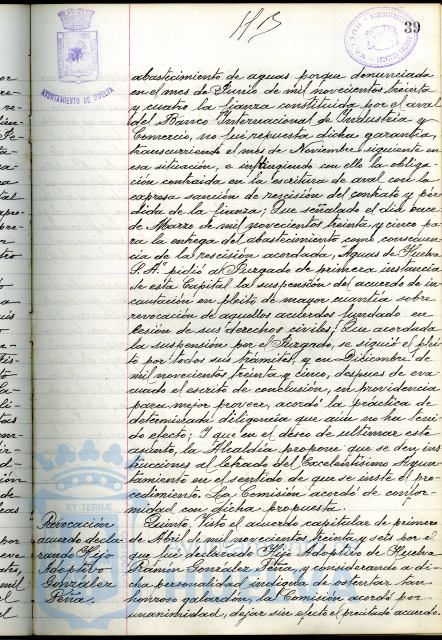 39
AYUNTAMIENTO DE HUELVA
abastecimiento de aguas porque denunciada
en el mes de Junio de mil novecientos treinta
y cuatro la fianza constituida por el aval
del Banco Internacional de Industria y
Comercio, no fué repuesta dicha garantía,
transcurriendo el mes de Noviembre siguiente en
esa situación, e infringiendo con ello la obliga-
ción contraida en la escritura de aval con la
expresa sanción de rescisión del contrato y pér-
dida de la fianza; Que señalado el dia once
de Marzo de mil novecientos treinta y cinco pa
ra la entrega del abastecimiento como consecuen
cia de la rescisión acordada, "Aguas de Huelva
S.A." pidió al Juzgado de primera instancia
de esta Capital la suspensión del acuerdo de in-
cautación en pleito de mayor cuantía sobre
revocación de aquellos acuerdos fundado en
lesión de sus derechos civiles; Que acordada
la suspensión por el Juzgado, se siguió el plei
to por todos sus trámites, y en Diciembre de
mil novecientos treinta y cinco, despues de eva
cuado el escrito de conclusión, en providencia
para mejor proveer, acordó la práctica de
determinada diligencia que aún no ha teni
do efecto; Y que en el deseo de ultimar este
asunto, la Alcaldía propone que se den ins
trucciones al letrado del Excelentísimo Ayun
tamiento en el sentido de que se inste el pro
cedimiento. La Comisión acordó de confor-
midad con dicha propuesta.
ET TERRA
Revocación
acuerdo decla
rando Hijo
Adoptivo
González
Peña.
Quinto. Visto el acuerdo capitular de primero
de Abril de mil novecientos treinta y seis por el
que fué declarado Hijo Adoptivo de Huelva
Ramón González Peña, y considerando a di-
cha personalidad indigna de ostentar tan
honroso galardón, la Comisión acordó por
unanimidad, dejar sin efecto el precitado acuerdo.